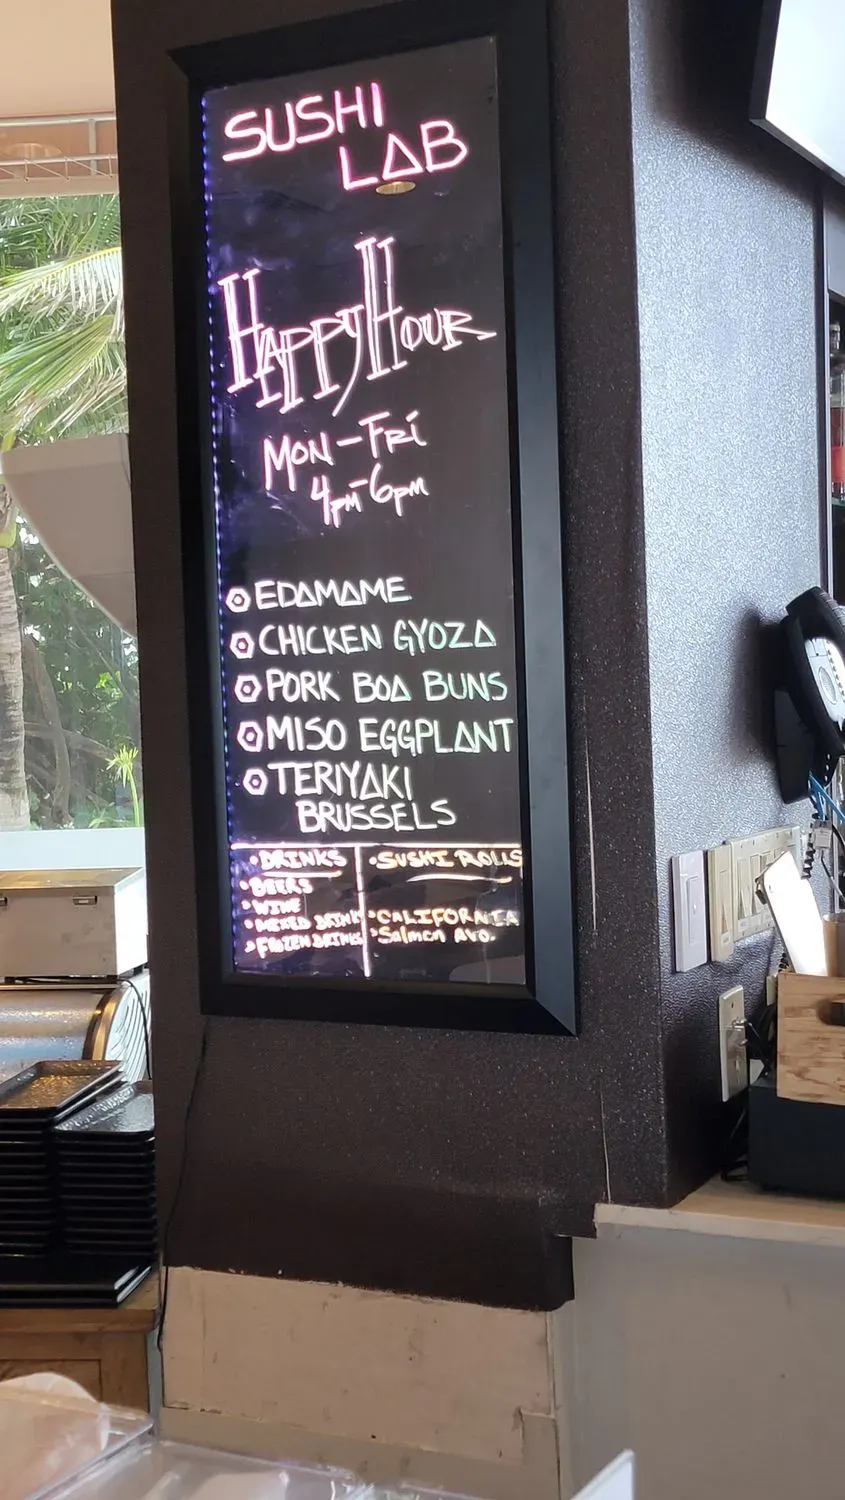 SUSHI
LAB
HAPPY HOUR
MON-FRi
4pm-6pm
EDAMAME
CHICKEN GYOZA
PORK BOA BUNS
MISO EGGPLANT
TERIYAKI
BRUSSELS
• DRINKS
• BEERS
• WINE
• MIXED DRINKS
• FROZEN DRINKS
• SUSHI ROLLS
• CALIFORNIA
• Salmon Avo.